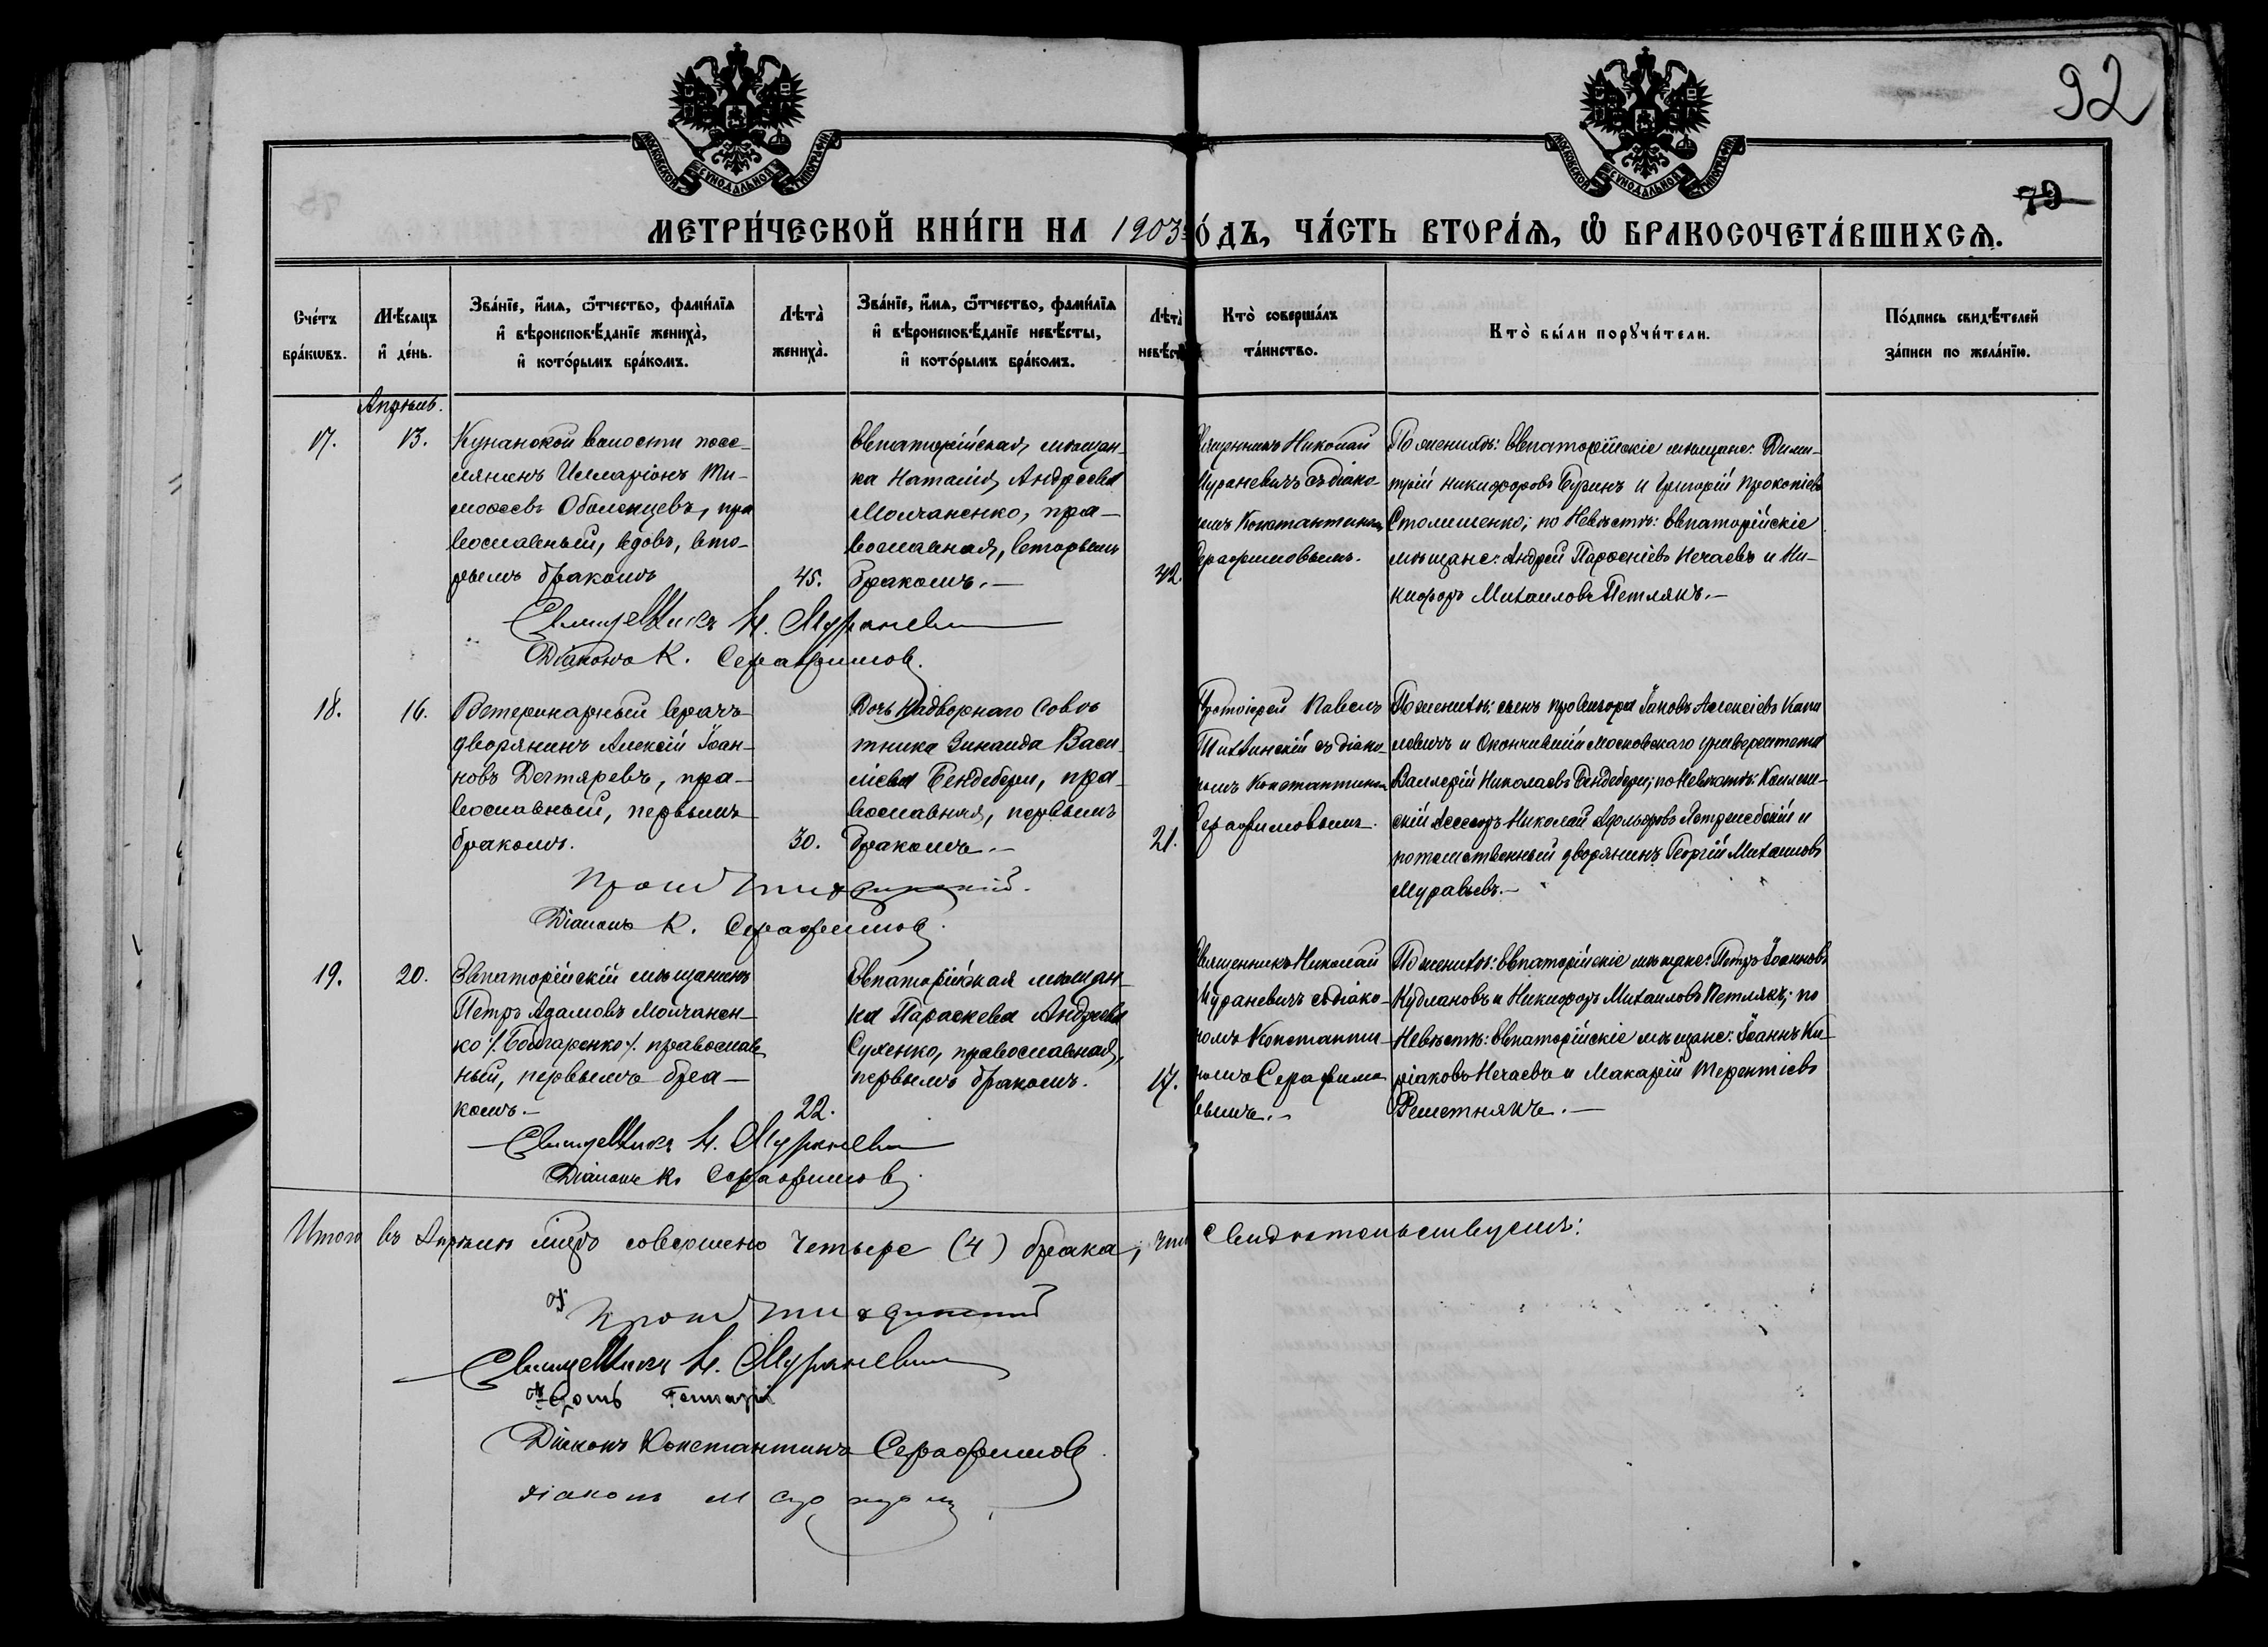 92
79
МОСКОВСКОЙ СѴНОДАЛЬНОЙ ТИПОГРАФІИ
МОСКОВСКОЙ СѴНОДАЛЬНОЙ ТИПОГРАФІИ
МЕТРИ́ЧЕСКОЙ КНИ́ГИ НА 1903 ГО́ДЪ, ЧА́СТЬ ВТОРА́Ѧ, Ѡ҆ БРАКОСОЧЕТА́ВШИХСѦ.
Сче́тъ
бра́кѡвъ.
Мѣ́сѧцъ
и҆ де́нь.
Зва́нїе, и҆́мѧ, ѻ҆́тчество, фами́лїѧ
и҆ вѣроисповѣ́данїе жениха̀,
и҆ кото́рымъ бра́комъ.
Лѣта̀
жениха̀.
Зва́нїе, и҆́мѧ, ѻ҆́тчество, фами́лїѧ
и҆ вѣроисповѣ́данїе невѣ́сты,
и҆ кото́рымъ бра́комъ.
Лѣта̀
невѣ́сты
Кто̀ соверша́лъ
та́инство.
Кто̀ бы́ли порꙋчи́тели.
По́дпись свидѣ́телей
за́писи по жела́нїю.
Апрѣль.
17.
13.
Кунанской волости посе-
лянинъ Илларіонъ Ти-
моѳеевъ Оболенцевъ, пра
вославный, вдовъ, вто-
рымъ бракомъ
45.
Евпаторійская мѣщан-
ка Наталія Андреева
Молчаненко, пра-
вославная, вторымъ
бракомъ.-
42.
Священникъ Николай
Мураневичъ съ діако-
номъ Константиномъ
Серафимовымъ.
По женихѣ: Евпаторійскіе мѣщане: Дими-
трій Никифоровъ Буринъ и Григорій Прокопіевъ
Столишенко; по Невѣстѣ: Евпаторійскіе
мѣщане: Андрей Парѳеніевъ Нечаевъ и Ни-
кифоръ Михаиловъ Петлякъ.-
Священникъ Н. Мураневичъ
Діаконъ К. Серафимовъ.
18.
16.
Ветеринарный врачъ
дворянинъ Алексій Іоан-
новъ Дегтяревъ, пра-
вославный, первымъ
бракомъ.
30.
Дочь Надворнаго Совѣ
тника Зинаида Васи-
ліева Бендебери, пра-
вославная, первымъ
бракомъ.-
21.
Протоіерей Павелъ
Тихвинскій съ діако-
номъ Константиномъ
Серафимовымъ.
По женихѣ: сынъ провизора Іаковъ Алексіевъ Капи
левичъ и Окончившій Московскаго университета
Валлерій Николаевъ Бендебери; по Невѣстѣ: Коллеж-
скій Ассесоръ Николай Адольфовъ Ястржебскій и
потомственный дворянинъ Георгій Михаиловъ
Муравьевъ.-
Прот Тихвинскій.
Діаконъ К. Серафимовъ.
19.
20.
Евпаторійскій мѣщанинъ
Петръ Адамовъ Молчанен-
ко /. Бондаренко /. православ
ный, первымъ бра-
комъ.-
22.
Евпаторійская мѣщан-
ка Параскева Андреева
Сухенко, православная,
первымъ бракомъ.
17.
Священникъ Николай
Мураневичъ съ діако-
номъ Константи-
номъ Серафимо
вымъ.-
По женихѣ: Евпаторійскіе мѣщане: Петръ Іоанновъ
Кудлановъ и Никифоръ Михаиловъ Петлякъ; по
Невѣстѣ: Евпаторійскіе мѣщане: Іоаннъ Ки-
ріаковъ Нечаевъ и Макарій Терентіевъ
Решетнякъ.-
Священникъ Н. Мураневичъ
Діаконъ К. Серафимовъ.
Итого въ Апрѣлѣ мцѣ совершено Четыре (4) брака; что свидѣтельствуемъ:
Прот Тихвинскій
Священникъ Н. Мураневичъ
Діаконъ Константинъ Серафимовъ.
діаконъ М